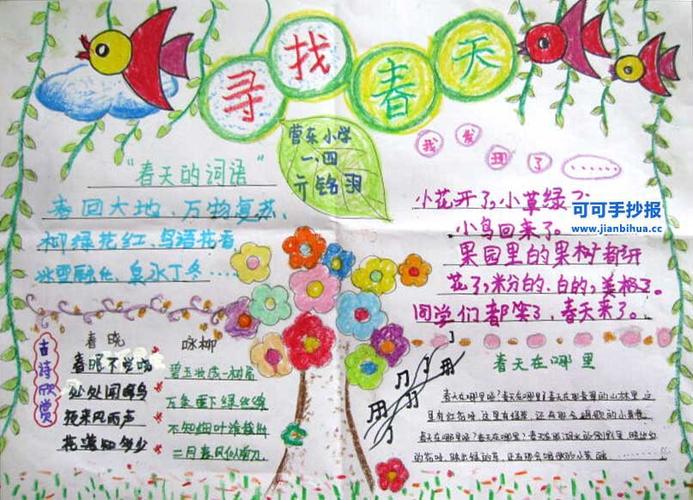 寻找春天
营东小学
一.四
亓铭羽
“春天的词语”
春回大地、万物复苏、
柳绿花红、鸟语花香、
冰雪融化、泉水丁冬……
我发现了……
小花开了,小草绿了
小鸟回来了。
果园里的果树都开
花了,粉的、白的,美极了。
同学们都笑了,春天来了。
可可手抄报
www.jianbihua.cc
古诗欣赏
春晓
春眠不觉晓
处处闻啼鸟
夜来风雨声
花落知多少
咏柳
碧玉妆成一树高
万条垂下绿丝绦
不知细叶谁裁出
二月春风似剪刀
春天在哪里
春天在哪里呀?春天在哪里?春天在那青翠的山林里,这
里有红花呀,这里有绿草,还有那会唱歌的小黄鹂
春天在哪里呀?春天在哪里?春天在那湖水的倒影里,映出红
的花呀,映出绿的草,还有那会唱歌的小黄鹂……